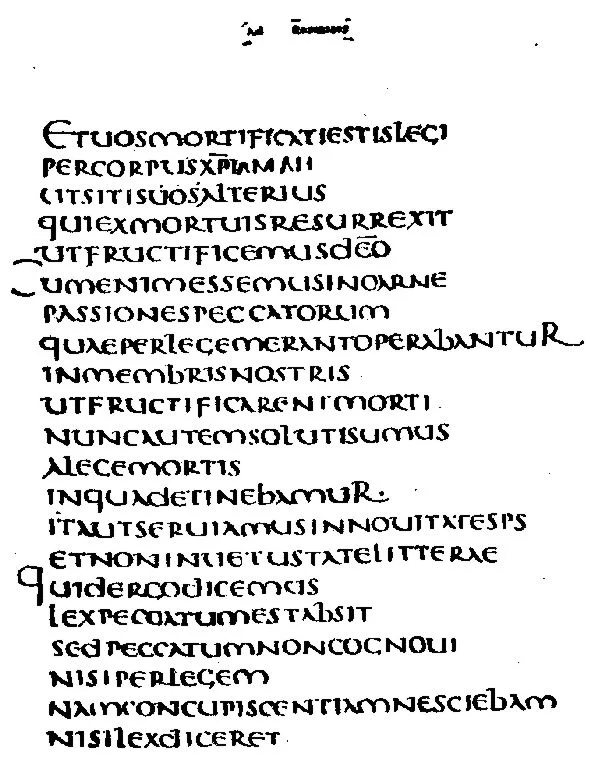 Ad Romanos
ETUOSMORTIFICATIESTISLEGI
PERCORPUSXPIAMAII
UTSITISUOSALTERIUS
QUIEXMORTUISRESURREXIT
UTFRUCTIFICEMUSDEO
UMENIMESSEMUSINCARNE
PASSIONESPECCATORUM
QUAEPERLEGEMERANTOPERABANTUR
INMEMBRISNOSTRIS
UTFRUCTIFICARENTMORTI
NUNCAUTEMSOLUTISUMUS
ALEGEMORTIS
INQUADETINEBAMUR.
ITAUTSERUIAMUSINNOUITATESPS
ETNONINUETUSTATELITTERAE
QUIDERGODICEMUS
LEXPECCATUMESTABSIT
SEDPECCATUMNONCOGNOUI
NISIPERLEGEM
NAMCONCUPISCENTIAMNESCIEBAM
NISILEXDICERET